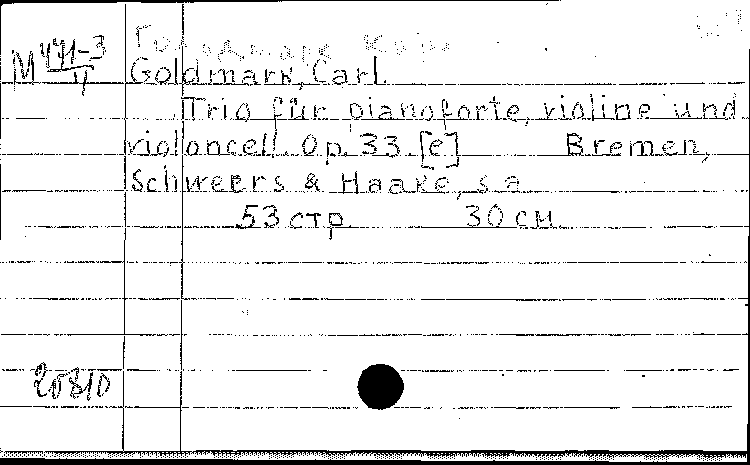 M 441-3
II
Goldmark, Carl.
Trio für pianoforte, violine und
violoncell. Op. 33. [e] Bremen,
Schweers & Haake, s a
53 стр. 30 см.
20810